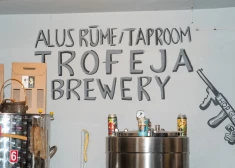 ALUS RŪME/TAPROOM
TROFEJA
BREWERY
6